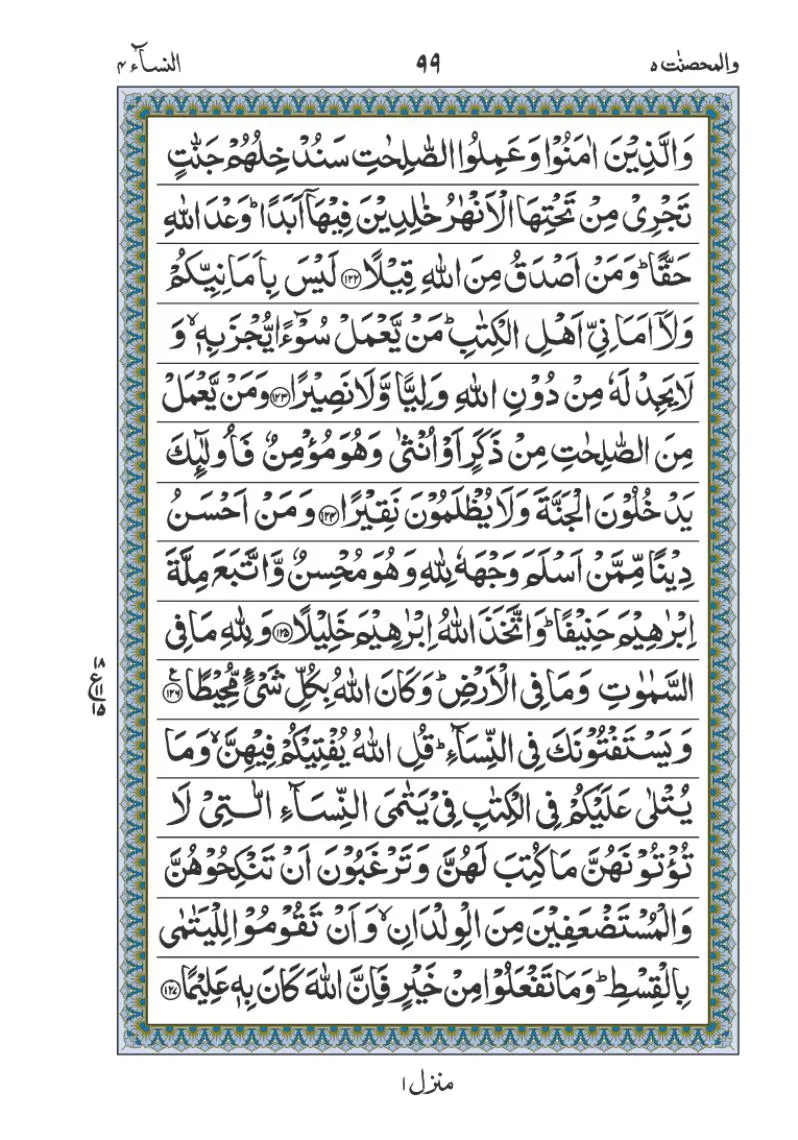 والمحصنٰت ٥ ٩٩ النسآء ٤
وَالَّذِيْنَ اٰمَنُوْا وَعَمِلُوا الصّٰلِحٰتِ سَنُدْخِلُهُمْ جَنّٰتٍ
تَجْرِيْ مِنْ تَحْتِهَا الْاَنْهٰرُ خٰلِدِيْنَ فِيْهَآ اَبَدًا ؕ وَعْدَ اللّٰهِ
حَقًّا ؕ وَمَنْ اَصْدَقُ مِنَ اللّٰهِ قِيْلًا ﴿۱۲۲﴾ لَيْسَ بِاَمَانِيِّكُمْ
وَلَآ اَمَانِيِّ اَهْلِ الْكِتٰبِ ؕ مَنْ يَّعْمَلْ سُوْٓءًا يُّجْزَ بِهٖ ۙ وَ
لَا يَجِدْ لَهٗ مِنْ دُوْنِ اللّٰهِ وَلِيًّا وَّلَا نَصِيْرًا ﴿۱۲۳﴾ وَمَنْ يَّعْمَلْ
مِنَ الصّٰلِحٰتِ مِنْ ذَكَرٍ اَوْ اُنْثٰى وَهُوَ مُؤْمِنٌ فَاُولٰٓئِكَ
يَدْخُلُوْنَ الْجَنَّةَ وَلَا يُظْلَمُوْنَ نَقِيْرًا ﴿۱۲۴﴾ وَمَنْ اَحْسَنُ
دِيْنًا مِّمَّنْ اَسْلَمَ وَجْهَهٗ لِلّٰهِ وَهُوَ مُحْسِنٌ وَّاتَّبَعَ مِلَّةَ
اِبْرٰهِيْمَ حَنِيْفًا ؕ وَاتَّخَذَ اللّٰهُ اِبْرٰهِيْمَ خَلِيْلًا ﴿۱۲۵﴾ وَلِلّٰهِ مَا فِى
السَّمٰوٰتِ وَمَا فِى الْاَرْضِ ؕ وَكَانَ اللّٰهُ بِكُلِّ شَيْءٍ مُّحِيْطًا ﴿۱۲۶﴾ ع
۱۸ ع ۱۱ ۱۵
وَيَسْتَفْتُوْنَكَ فِى النِّسَآءِ ؕ قُلِ اللّٰهُ يُفْتِيْكُمْ فِيْهِنَّ ۙ وَمَا
يُتْلٰى عَلَيْكُمْ فِى الْكِتٰبِ فِيْ يَتٰمَى النِّسَآءِ الّٰتِيْ لَا
تُؤْتُوْنَهُنَّ مَا كُتِبَ لَهُنَّ وَتَرْغَبُوْنَ اَنْ تَنْكِحُوْهُنَّ
وَالْمُسْتَضْعَفِيْنَ مِنَ الْوِلْدَانِ ۙ وَاَنْ تَقُوْمُوْا لِلْيَتٰمٰى
بِالْقِسْطِ ؕ وَمَا تَفْعَلُوْا مِنْ خَيْرٍ فَاِنَّ اللّٰهَ كَانَ بِهٖ عَلِيْمًا ﴿۱۲۷﴾
منزل ١